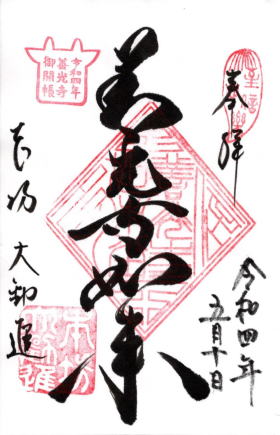 奉拝
令和四年
五月十日
善光寺如来
令和四年
善光寺
御開帳
本坊 大勧進